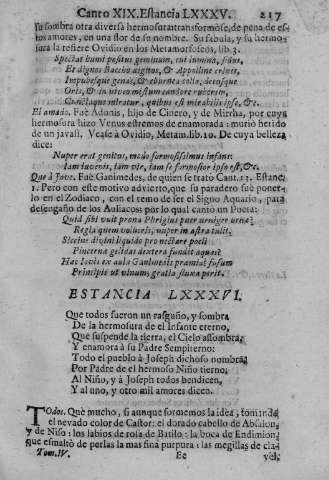 Canto XIX. Estancia LXXXV. 217
su sombra otra diversa hermosura transformòse, de pena de es-
tos amores, en una flor de su nombre. Su fabula, y su hermo-
sura la refiere Ovidio en los Metamorfoseos, lib. 3.
Spectat humi positus geminum, sua lumina, sidus,
Et dignos Baccho digitos, & Apolline crines,
Impubesque genas, & eburnea colla, decusque
Oris, & in niveo mistum candore ruborem,
Cunctaque miratur, quibus est mirabilis ipse, &c.
El amado. Fue Adonis, hijo de Cinero, y de Mirrha, por cuya
hermosura hizo Venus estremos de enamorada: murió herido
de un javali. Vease à Ovidio, Metam. lib. 10. De cuya belleza
dice:
Nuper erat genitus, modo formosissimus infans:
Iam iuvenis, iam vir, iam se formosior ipso est, &c.
Que à Jove. Fue Ganimedes, de quien se tratò Cant. 13. Estanc.
1. Pero con este motivo advierto, que su paradero fue poner-
lo en el Zodiaco, con el remo de ser el Signo Aquario, para
desengaño de los Aulicos; por lo qual cantò un Poeta:
Quid sibi vult prona Phrigius puer urna?
Regla quem volucris, nuper in astra tulit.
Siccine divini liquido pro nectare poeli
Pincerna gelidas dextera fundit aquas?
Hac locis ex aula Ganimedis praemia fusum
Principis ut vinum, gratia fluxa perit.
ESTANCIA LXXXVI.
Que todos fueron un rasguño, y sombra
De la hermosura de el Infante eterno,
Que suspende la tierra, el Cielo assombra,
Y enamora à su Padre Sempiterno:
Todo el pueblo à Joseph dichoso nombra,
Por Padre de el hermoso Niño tierno;
Al Niño, y à Joseph todos bendicen,
Y al uno, y otro mil amores dicen.
Todos. Què mucho, si aunque formemos la idea, tomando
el nevado color de Castor: el dorado cabello de Absalon,
y de Niso: los labios de rosa de Batilo: la boca de Endimion,
que esmaltò de perlas la mas fina purpura: las megillas de cla-
Tom. IV. Ee vel,